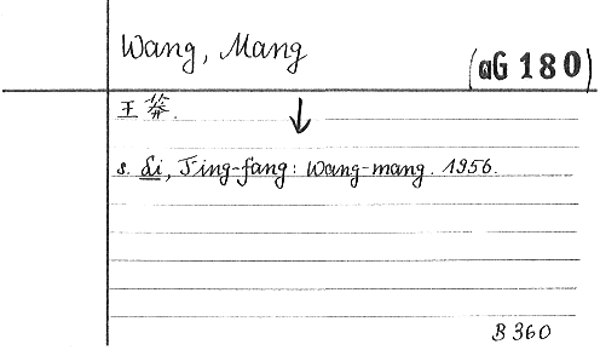 Wang, Mang
(aG 180)
王莽.
s. Li, Ting-fang: Wang-mang. 1956.
B 360